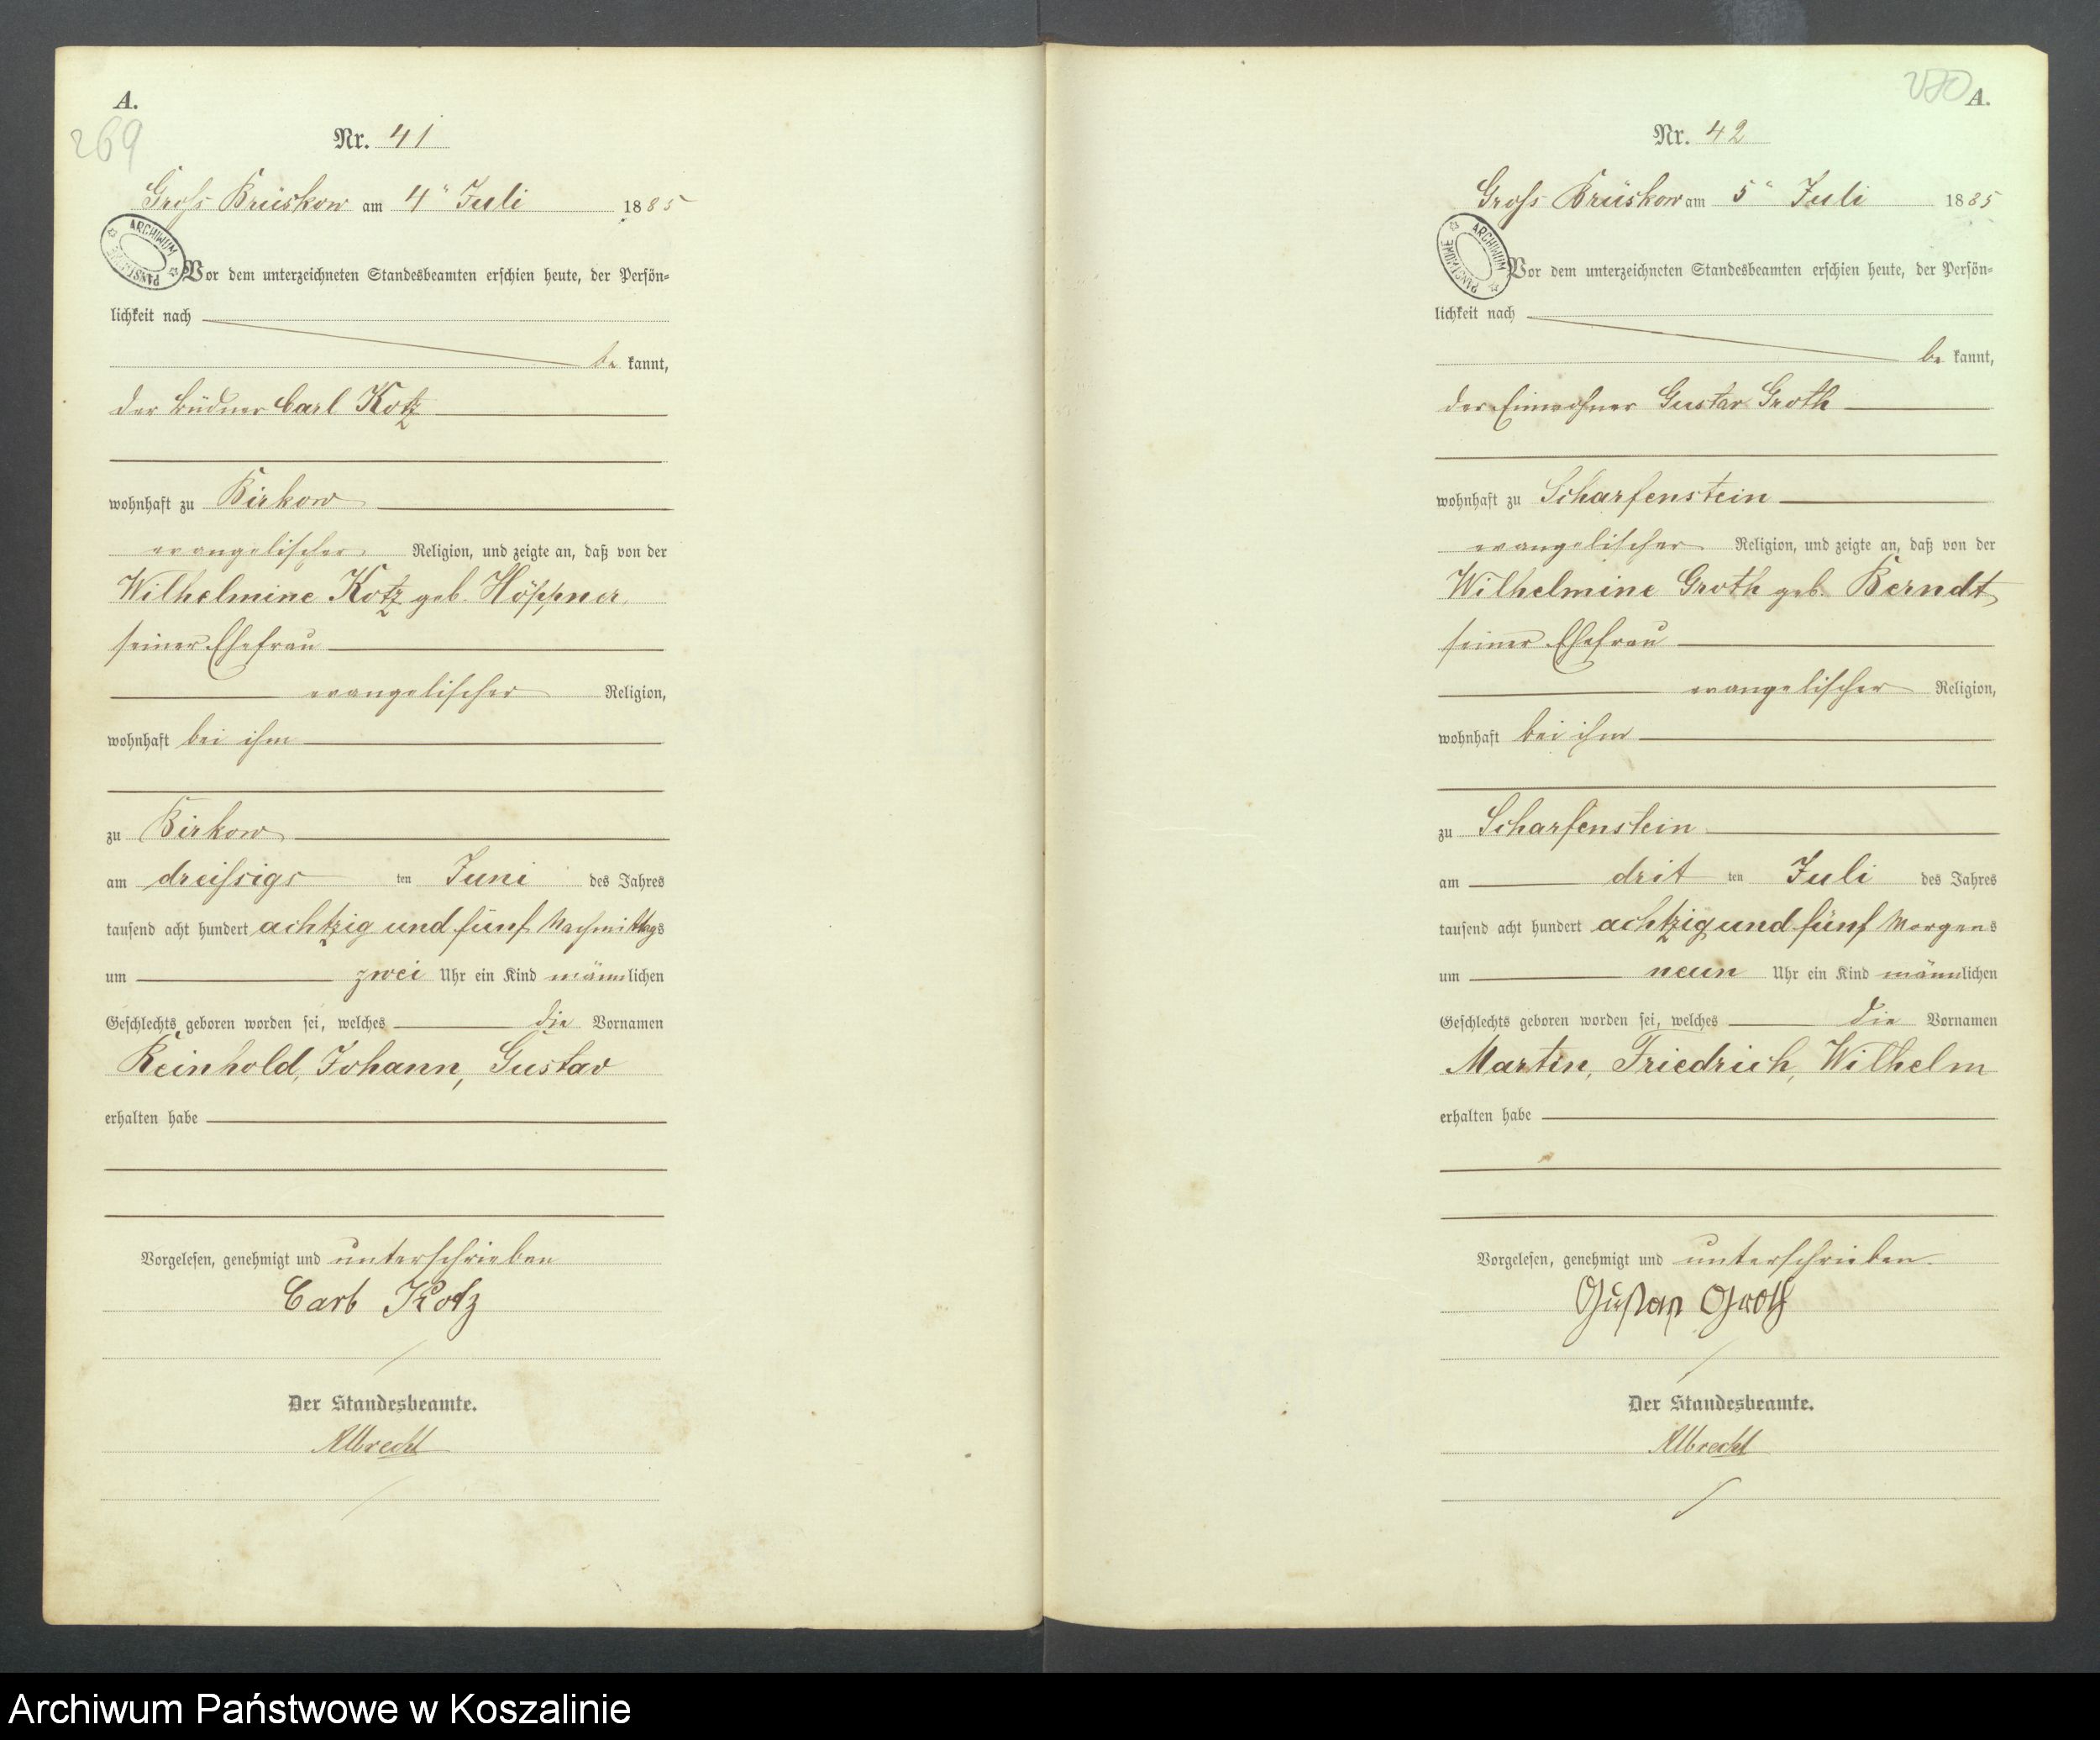 A.
269
Nr. 41
Gross Brüskow am 4ⁿ Juli 1885
ARCHIWUM PAŃSTWOWE
Vor dem unterzeichneten Standesbeamten erschien heute, der Persön=
lichkeit nach
be kannt,
der Büdner Carl Kotz
wohnhaft zu Birkow
evangelischer Religion, und zeigte an, daß von der
Wilhelmine Kotz geb. Höppner,
seiner Ehefrau
evangelischer Religion,
wohnhaft bei ihm
zu Birkow
am dreissigs ten Juni des Jahres
tausend acht hundert achtzig und fünf Nachmittags
um zwei Uhr ein Kind männlichen
Geschlechts geboren worden sei, welches die Vornamen
Reinhold, Johann, Gustav
erhalten habe
Vorgelesen, genehmigt und unterschrieben
Carl Kotz
Der Standesbeamte.
Albrecht
270
A.
Nr. 42
Gross Brüskow am 5ⁿ Juli 1885
ARCHIWUM PAŃSTWOWE
Vor dem unterzeichneten Standesbeamten erschien heute, der Persön=
lichkeit nach
be kannt,
der Einwohner Gustav Groth
wohnhaft zu Scharfenstein
evangelischer Religion, und zeigte an, daß von der
Wilhelmine Groth geb. Berndt
seiner Ehefrau
evangelischer Religion,
wohnhaft bei ihm
zu Scharfenstein
am drit ten Juli des Jahres
tausend acht hundert achtzig und fünf Morgens
um neun Uhr ein Kind männlichen
Geschlechts geboren worden sei, welches die Vornamen
Martin, Friedrich, Wilhelm
erhalten habe
Vorgelesen, genehmigt und unterschrieben.
Gustav Groth
Der Standesbeamte.
Albrecht
Archiwum Państwowe w Koszalinie